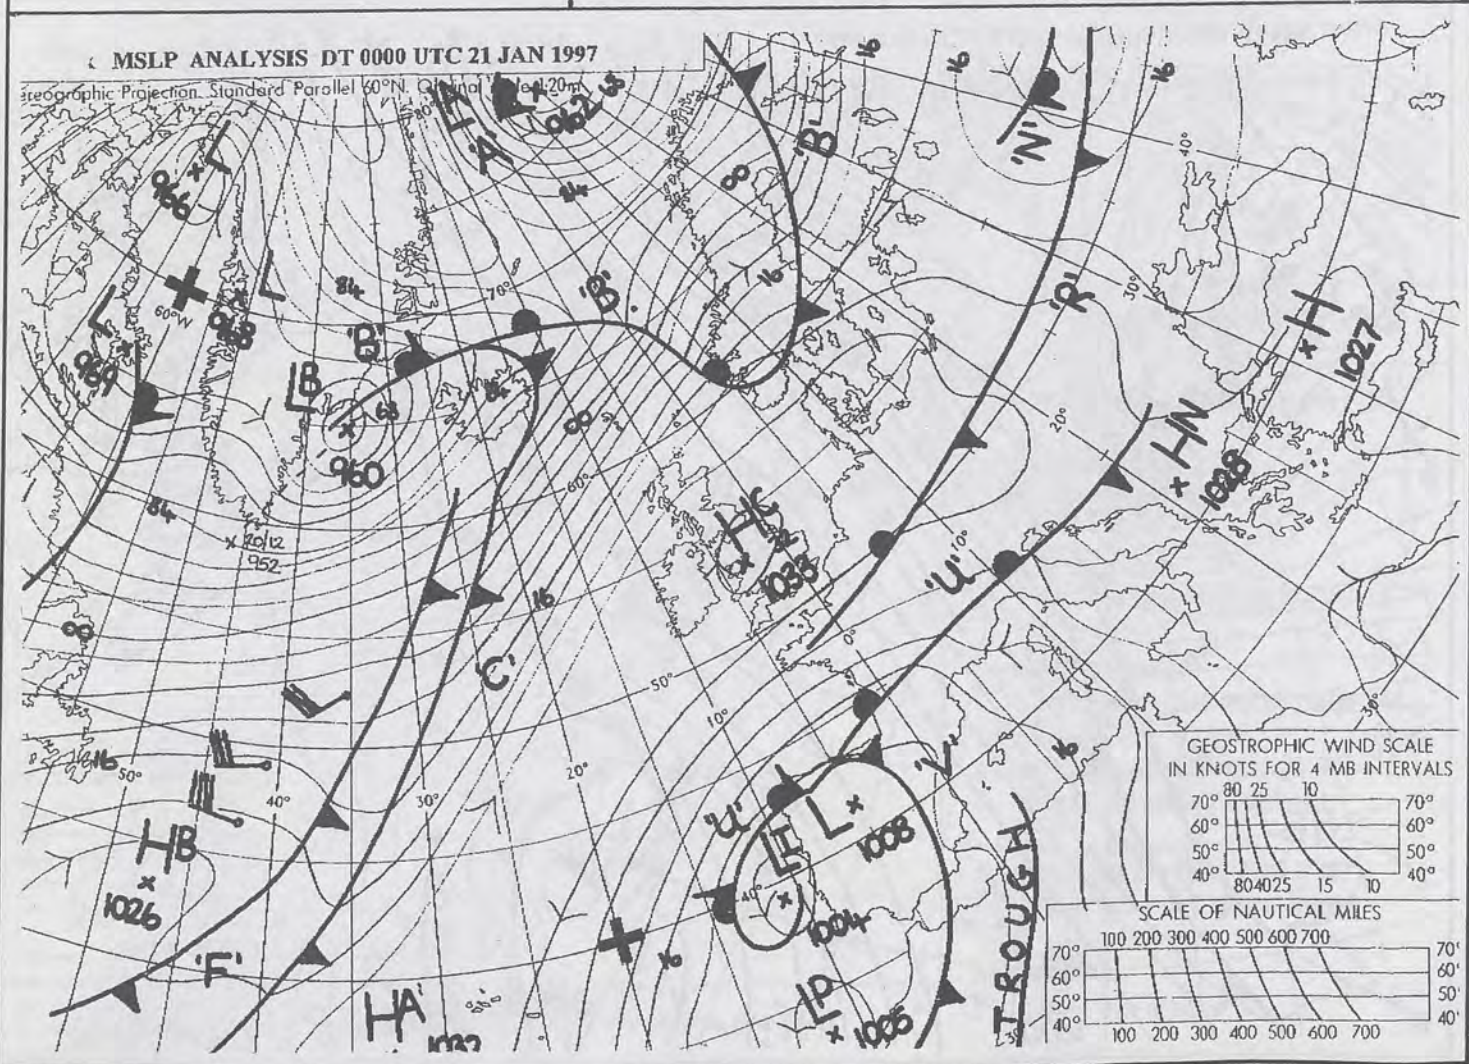 MSLP ANALYSIS DT 0000 UTC 21 JAN 1997
Stereographic Projection. Standard Parallel 60°N.
L
966
'A'
962
80°
84
8
'B'
16
16
16
'N'
40°
60°W
L
968
84
L
969
70°
'B'
'B'
16
'R'
30°
H
1027
LB
68
960
84
8
60°
20°
HN
1028
84
20/12
952
HC
1033
10°
'U'
0°
8
16
'C'
50°
10°
30°
16
50°
40°
30°
20°
'V'
16
'U'
LI
L
1008
HB
1026
40°
1004
16
'F'
HA'
1032
LP
1005
TROUGH
GEOSTROPHIC WIND SCALE
IN KNOTS FOR 4 MB INTERVALS
80 25 10
70° 70°
60° 60°
50° 50°
40° 40°
80 40 25 15 10
SCALE OF NAUTICAL MILES
100 200 300 400 500 600 700
70° 70°
60° 60°
50° 50°
40° 40°
100 200 300 400 500 600 700